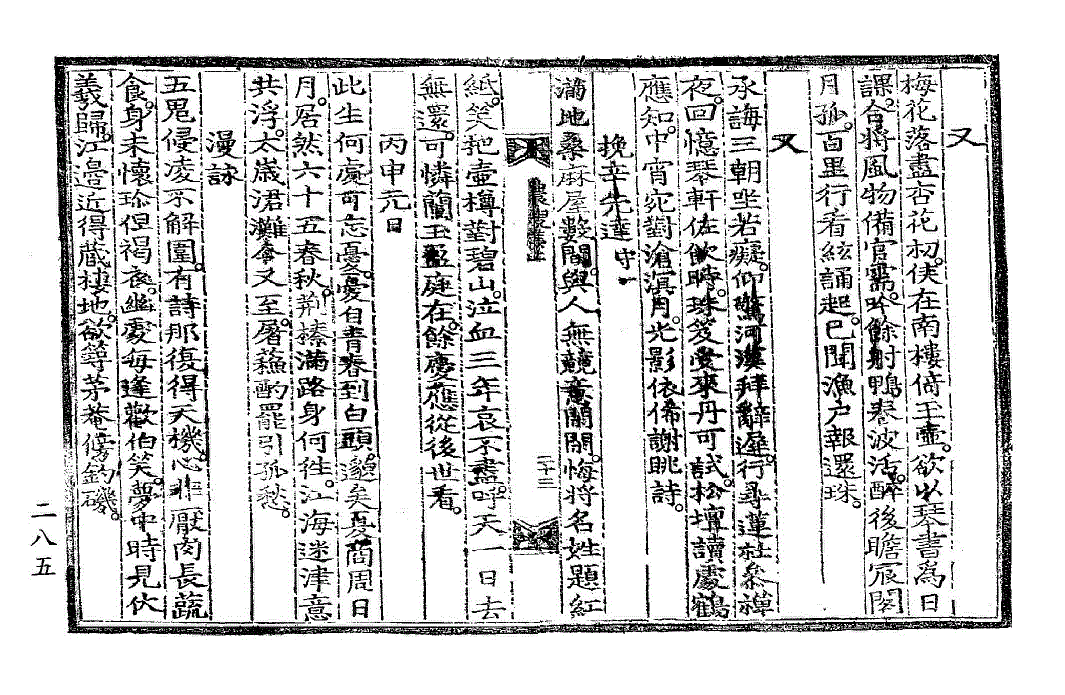 又
梅花落盡杏花初。俠在南樓倚玉壺。欲以琴書爲日
課。合將風物備官需。吟餘射鴨春波活。醉後瞻宸閣
月孤。百里行看絃誦起。已聞漁戶報還珠。
又
承誨三朝坐若癡。仰驚河漢拜辭遲。行尋蓮社參禪
夜。回憶琴軒佐飮時。珠笈受來丹可試。松壇讀處鶴
應知。中宵宛對滄溟月。光影依俙謝眺詩。
挽辛先達守
滿地桑麻屋數間。與人無競意闌闌。悔將名姓題紅
二十三
紙。笑把壺樽對碧山。泣血三年哀不盡。呼天一日去
無還。可憐蘭玉盈庭在。餘慶應從後世看。
丙申元日
此生何處可忘憂。憂自青春到白頭。邈矣夏商周日
月。居然六十五春秋。荊榛滿路身何往。江海迷津意
共浮。太歲涒灘今又至。屠蘇酌罷引孤愁。
漫詠
五鬼侵凌不解圍。有詩那復得天機。心非厭肉長蔬
食。身未懷珍但褐衣。幽處每逢歡伯笑。夢中時見伏
羲歸。江邊近得藏棲地。欲葺茅菴傍釣磯。
二八五